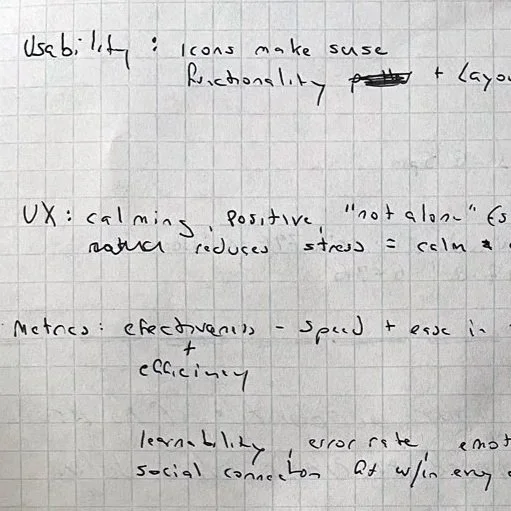 Usability : Icons make suse
functionality + Layou
UX : calming, positive, "not alone" (s
reduces stress = calm
Metrics : efectiveness - speed + ease in
+
efficiency
learnability, error rate, emot
social connection at w/in